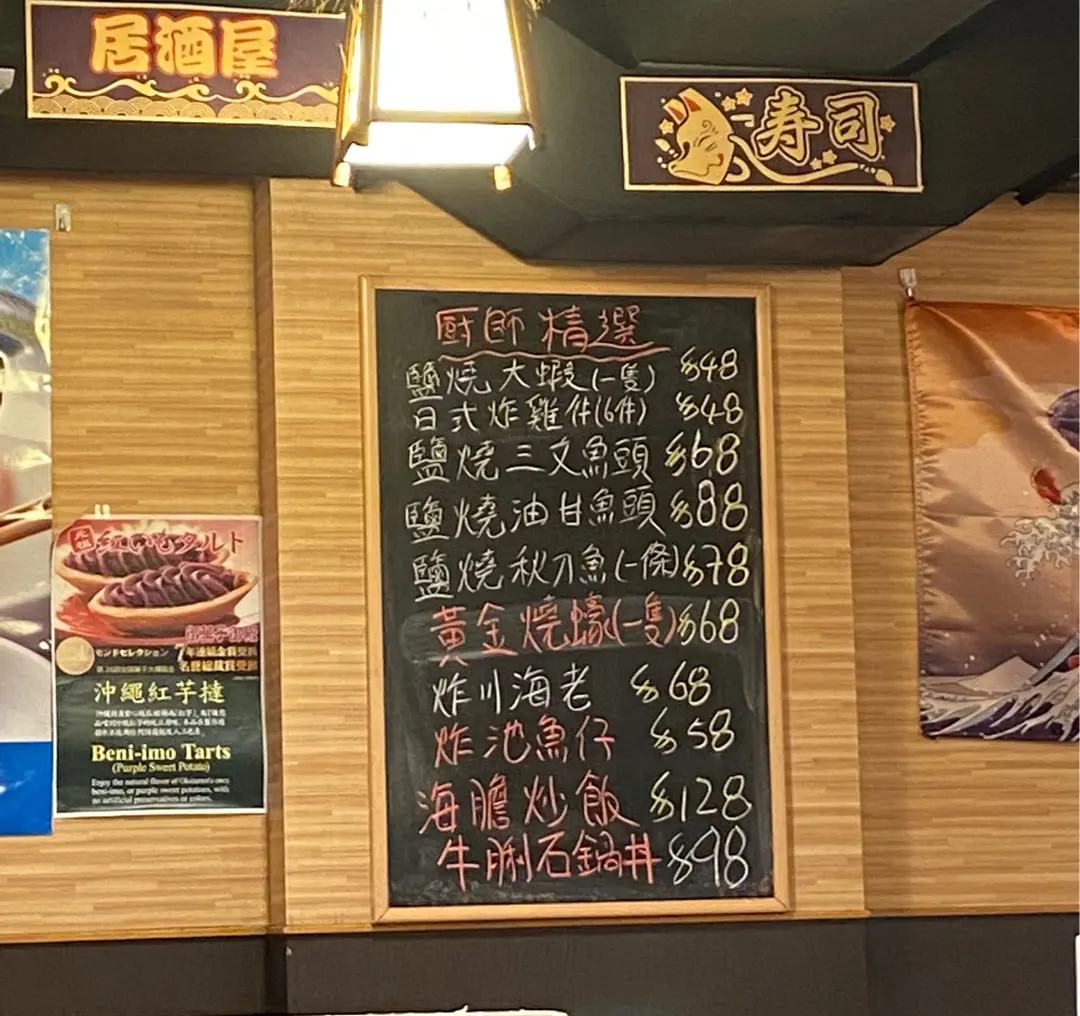 居酒屋
寿司
廚師精選
鹽燒大蝦(一隻) $48
日式炸雞件(6件) $48
鹽燒三文魚頭 $68
鹽燒油甘魚頭 $88
鹽燒秋刀魚(一條) $78
黃金燒蠔(一隻) $68
炸川海老 $68
炸池魚仔 $58
海膽炒飯 $128
牛脷石鍋丼 $98
元祖
紅いもタルト
モンドセレクション
7年連続金賞受賞
沖繩紅芋撻
Beni-imo Tarts
(Purple Sweet Potato)
Enjoy the natural flavor of Okinawa's own
beni-imo, or purple sweet potatoes, with
no artificial preservatives or colors.